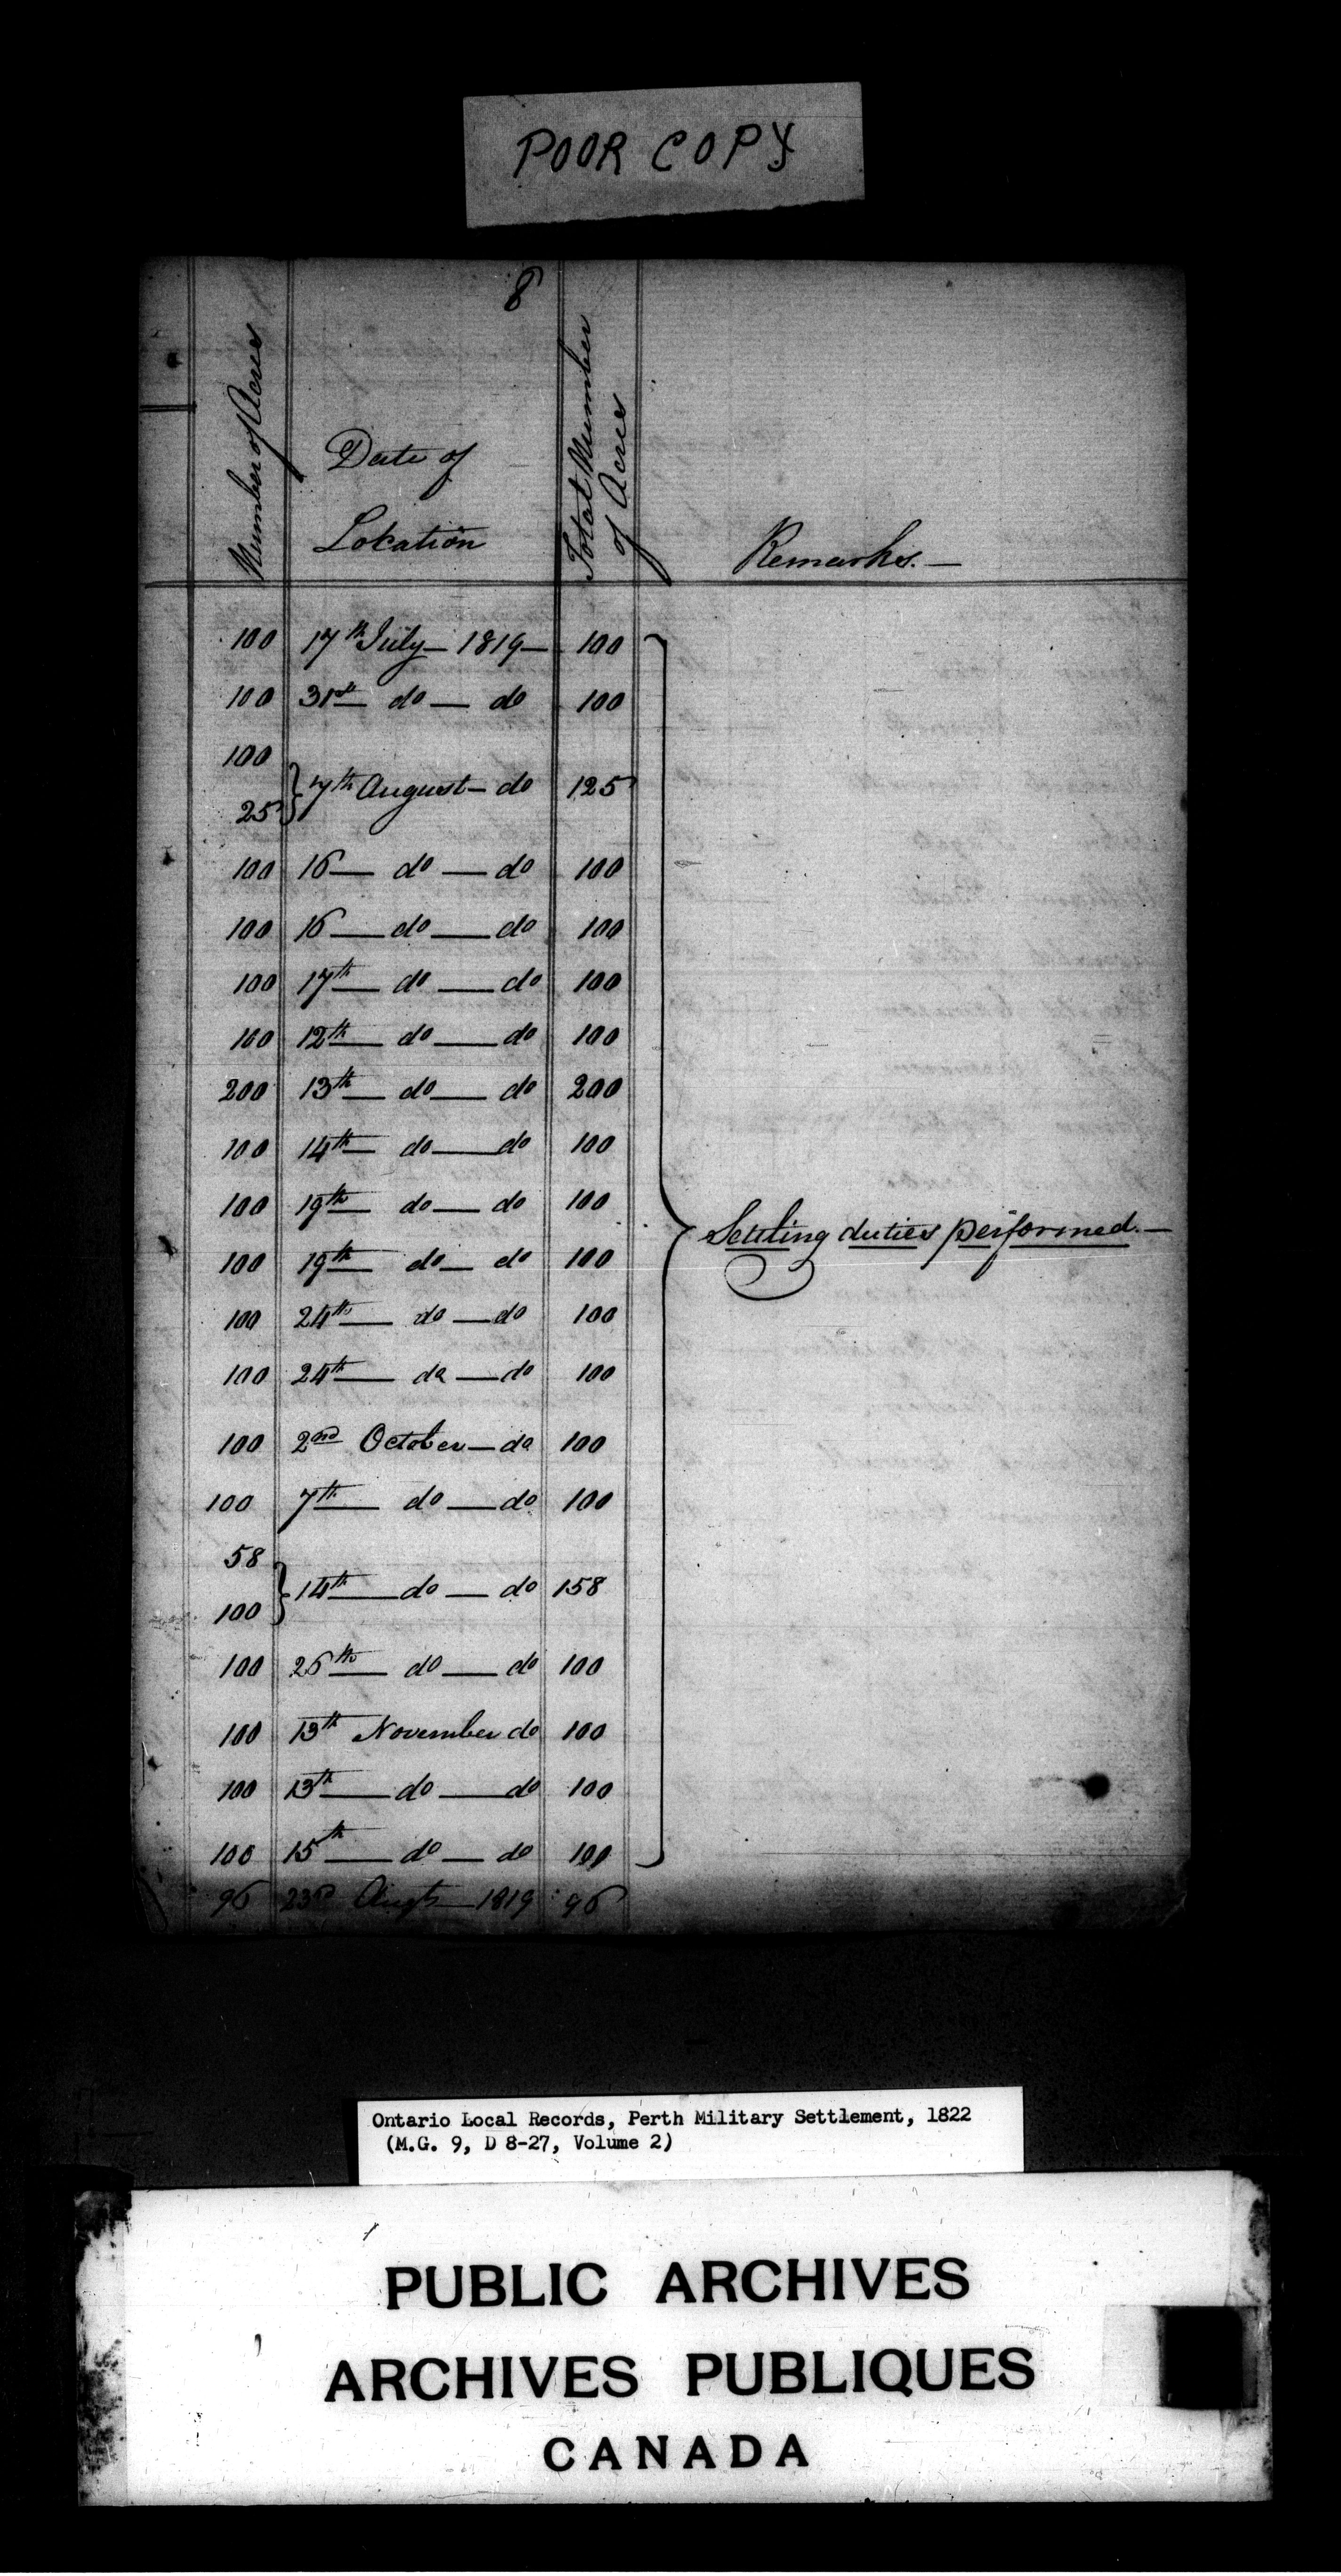 POOR COPY
8
Number of Acres
Date of Location
Total Number of Acres
Remarks.—
100 17th July — 1819 — 100
100 31st do — do 100
100
7th August — do 125
25
100 16 — do — do 100
100 16 — do — do 100
100 17th — do — do 100
100 12th — do — do 100
200 13th — do — do 200
100 14th — do — do 100
100 19th — do — do 100
Settling duties performed.—
100 19th — do — do 100
100 24th — do — do 100
100 24th — do — do 100
100 2nd October — do 100
100 7th — do — do 100
58
14th — do — do 158
100
100 26th — do — do 100
100 13th November do 100
100 13th — do — do 100
100 15th — do — do 100
96 23d Augt — 1819 96
Ontario Local Records, Perth Military Settlement, 1822
(M.G. 9, D 8-27, Volume 2)
PUBLIC ARCHIVES
ARCHIVES PUBLIQUES
CANADA